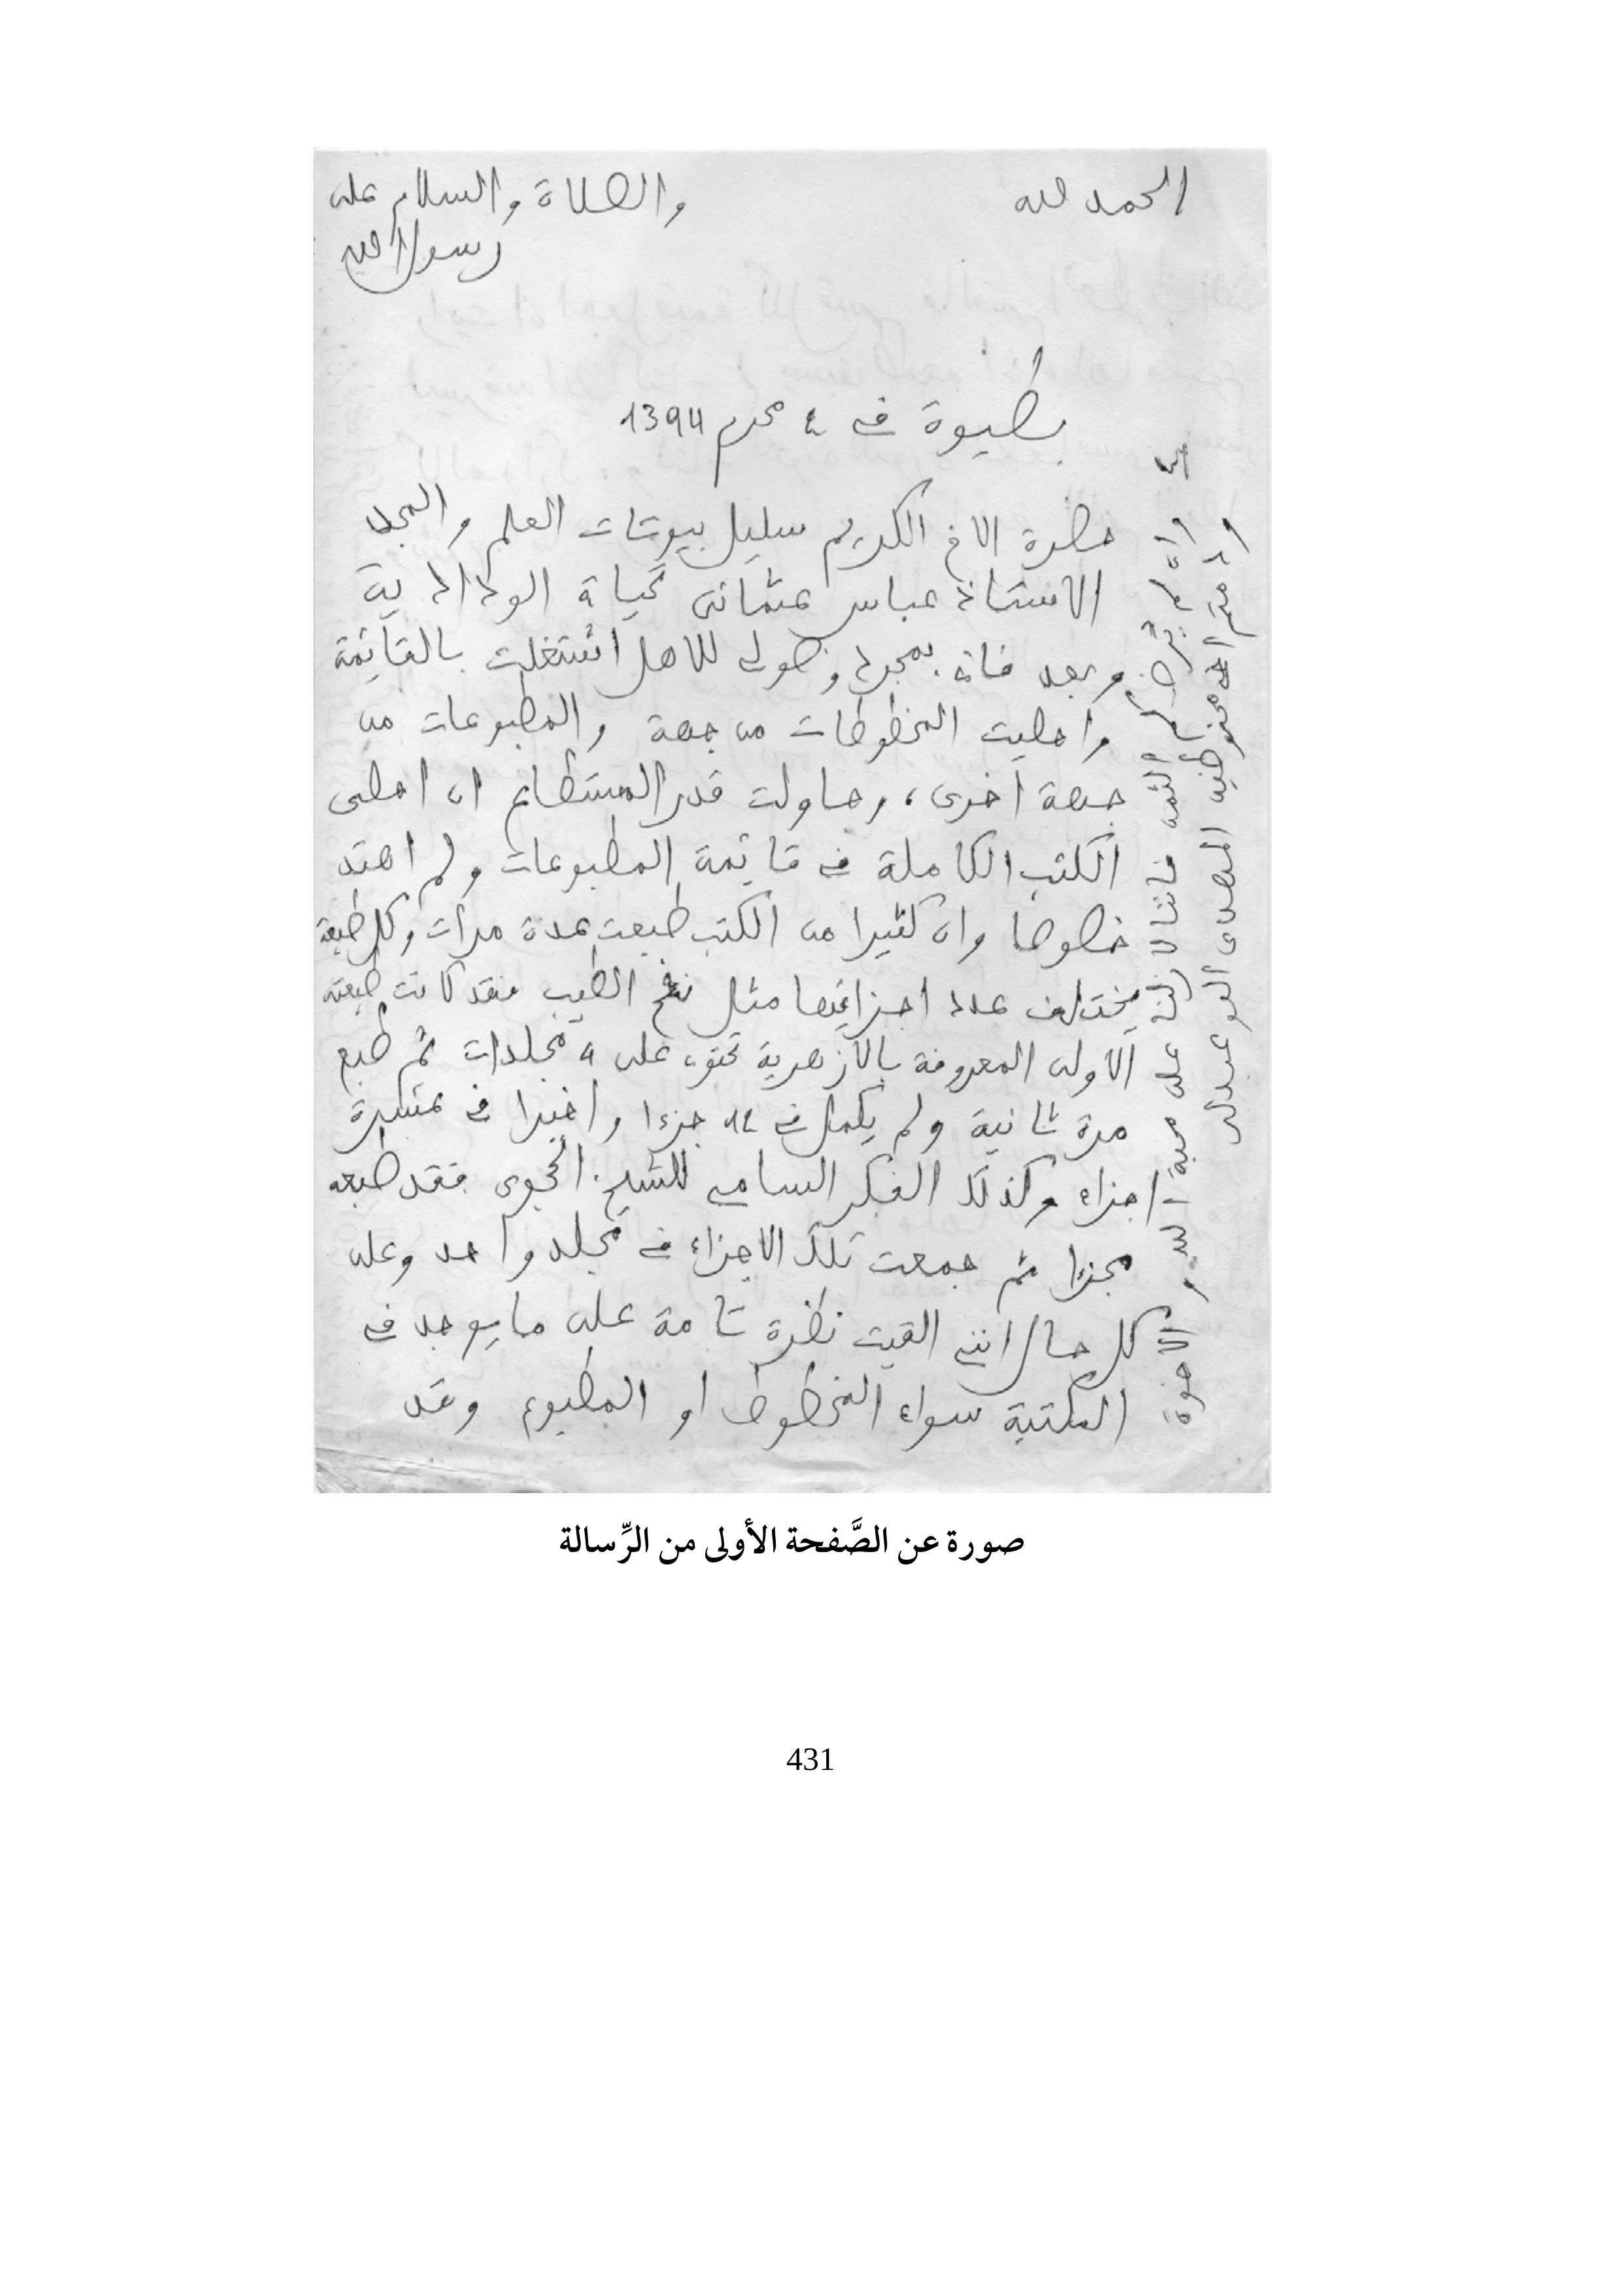 الحمد لله
والصلاة والسلام على
رسول الله
بطيوة في ٤ محرم 1394
الى
حضرة الاخ الكريم سليل بيوتات العلم والمجد
الاستاذ عباس عثماني تحياة الود
وبعد فانه بمجرد وصولي للاهل اشتغلت بالقائمة
واحليت المخطوطات من جهة والمطبوعات من
جهة اخرى، وحاولت قدر المستطاع ان احلى
الكتب الكاملة في قائمة المطبوعات ولم اهتد
خصوصا وان كثيرا من الكتب طبعت عدة مرات وكل طبعة
يختلف عدد اجزائها مثل نفح الطيب فقد كانت طبعته
الاولى المعروفة بالازهرية تحتوى على 4 مجلدات ثم طبع
مرة ثانية ولم يكمل في جزءا واخيرا في عشرة
اجزاء وكذلك الفكر السامي للشيخ الحجوى فقد طبعه
مجزءا ثم جمعت تلك الاجزاء في مجلد واحد وعلى
كل حال اننى القيت نظرة تامة على ما يوجد في
المكتبة سواء المخطوط او المطبوع وقد
وان لم الثمن فاننا على محبة الاخوة
المهدى البوعبدلي
صورة عن الصَّفحة الأولى من الرِّسالة
431